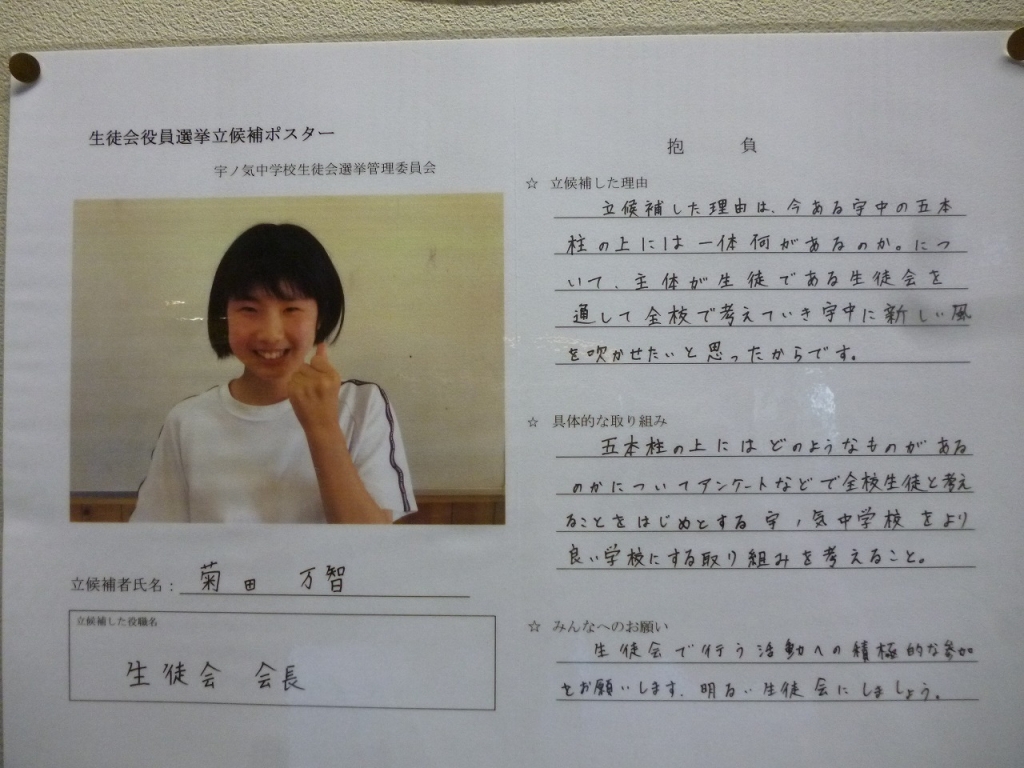 生徒会役員選挙立候補ポスター
宇ノ気中学校生徒会選挙管理委員会
立候補者氏名：菊田 万智
立候補した役職名
生徒会 会長
抱 負
☆ 立候補した理由
立候補した理由は、今ある宇中の五本
柱の上には一体何があるのか。につ
いて、主体が生徒である生徒会を
通して全校で考えていき宇中に新しい風
を吹かせたいと思ったからです。
☆ 具体的な取り組み
五本柱の上にはどのようなものがある
のかについてアンケートなどで全校生徒と考え
ることをはじめとする宇ノ気中学校をより
良い学校にする取り組みを考えること。
☆ みんなへのお願い
生徒会で行う活動への積極的な参加
をお願いします。明るい生徒会にしましょう。